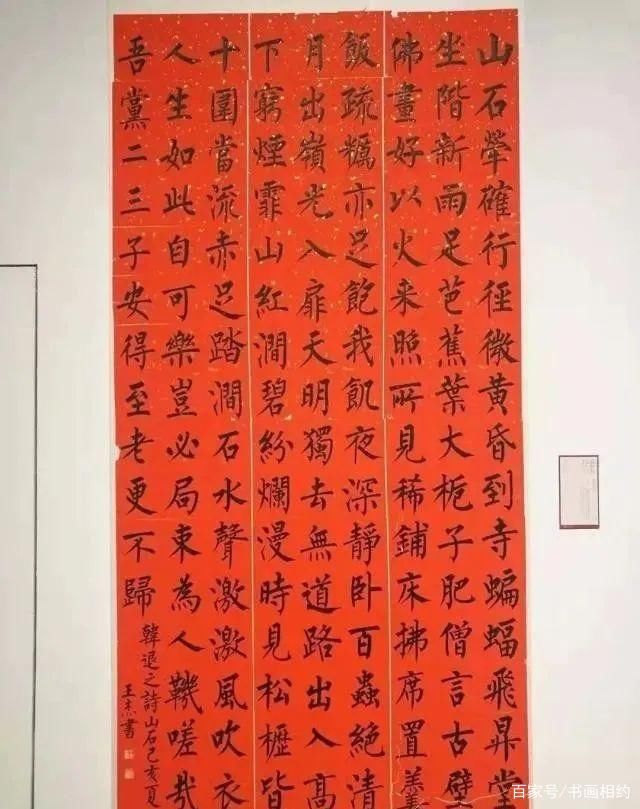 山石犖確行徑微黃昏到寺蝙蝠飛昇堂
坐階新雨足芭蕉葉大梔子肥僧言古壁
佛畫好以火来照所見稀鋪床拂席置羹
飯疏糲亦足飽我飢夜深靜卧百蟲絕清
月出嶺光入扉天明獨去無道路出入高
下窮煙霏山紅澗碧紛爛漫時見松櫪皆
十圍當流赤足踏澗石水聲激激風吹衣
人生如此自可樂豈必局束為人鞿嗟哉
吾黨二三子安得至老更不歸
韓退之詩山石己亥夏
王杰書
百家号/书画相约